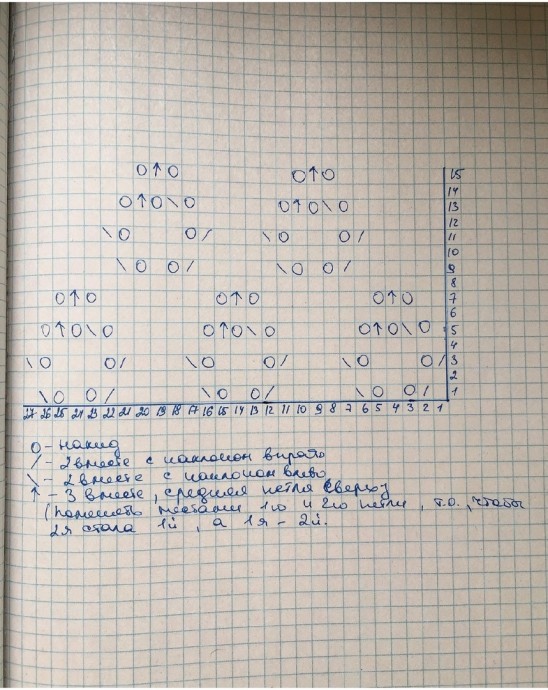 O↑O O↑O 15
14
O↑O\O O↑O\O 13
12
\O O/ \O O/ 11
10
\O O/ \O O/ 9
8
O↑O O↑O O↑O 7
6
O↑O\O O↑O\O O↑O\O 5
4
\O O/ \O O/ \O O/ 3
2
\O O/ \O O/ \O O/ 1
27 26 25 24 23 22 21 20 19 18 17 16 15 14 13 12 11 10 9 8 7 6 5 4 3 2 1
O - накид
/ - 2 вместе с наклоном вправо
\ - 2 вместе с наклоном влево
↑ - 3 вместе, средняя петля сверху
(поменять местами 1ю и 2ю петли, т.о., чтобы
2я стала 1й, а 1я - 2й.